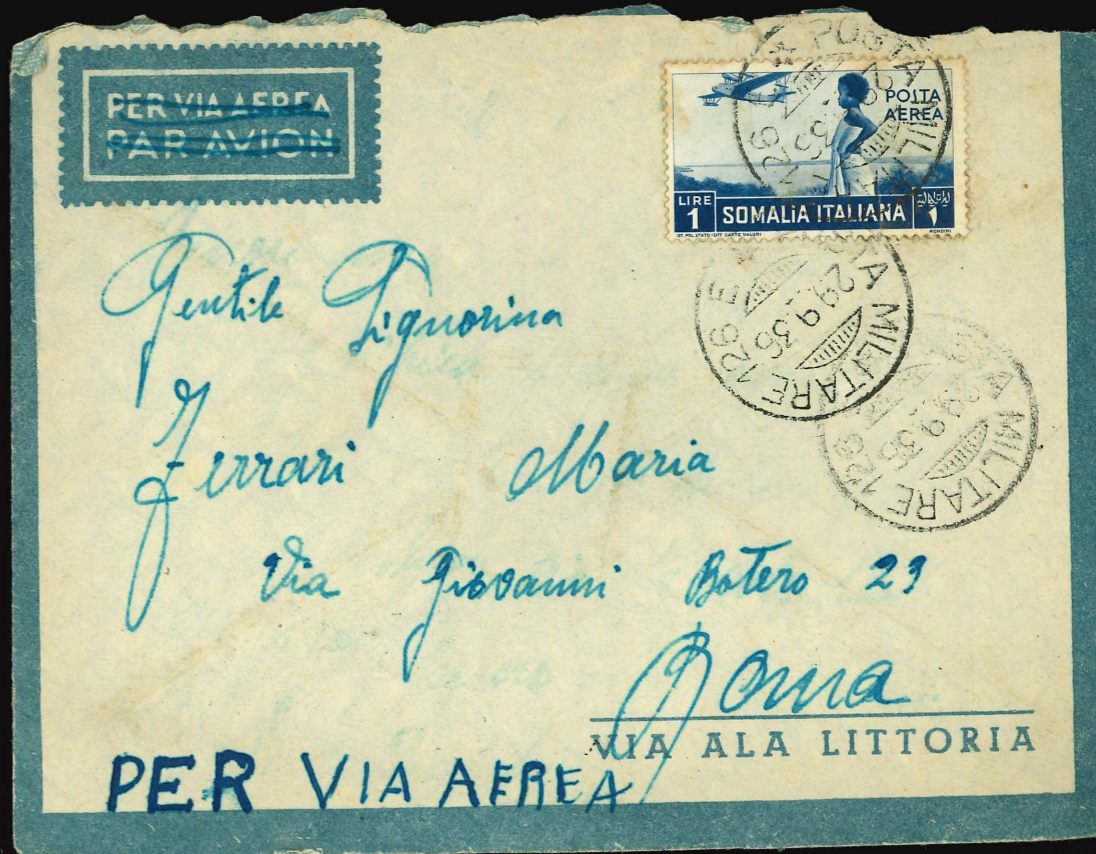 PER VIA AEREA
PAR AVION
POSTA AEREA
LIRE 1
SOMALIA ITALIANA
١
IST. POL. STATO-OFF. CARTE VALORI
MONDINI
POSTA MILITARE 126 E
29.9.36
POSTA MILITARE 126 E
29.9.36
POSTA MILITARE 126 E
29.9.36
Gentile Signorina
Ferrari Maria
Via Giovanni Botero 23
Roma
VIA ALA LITTORIA
PER VIA AEREA